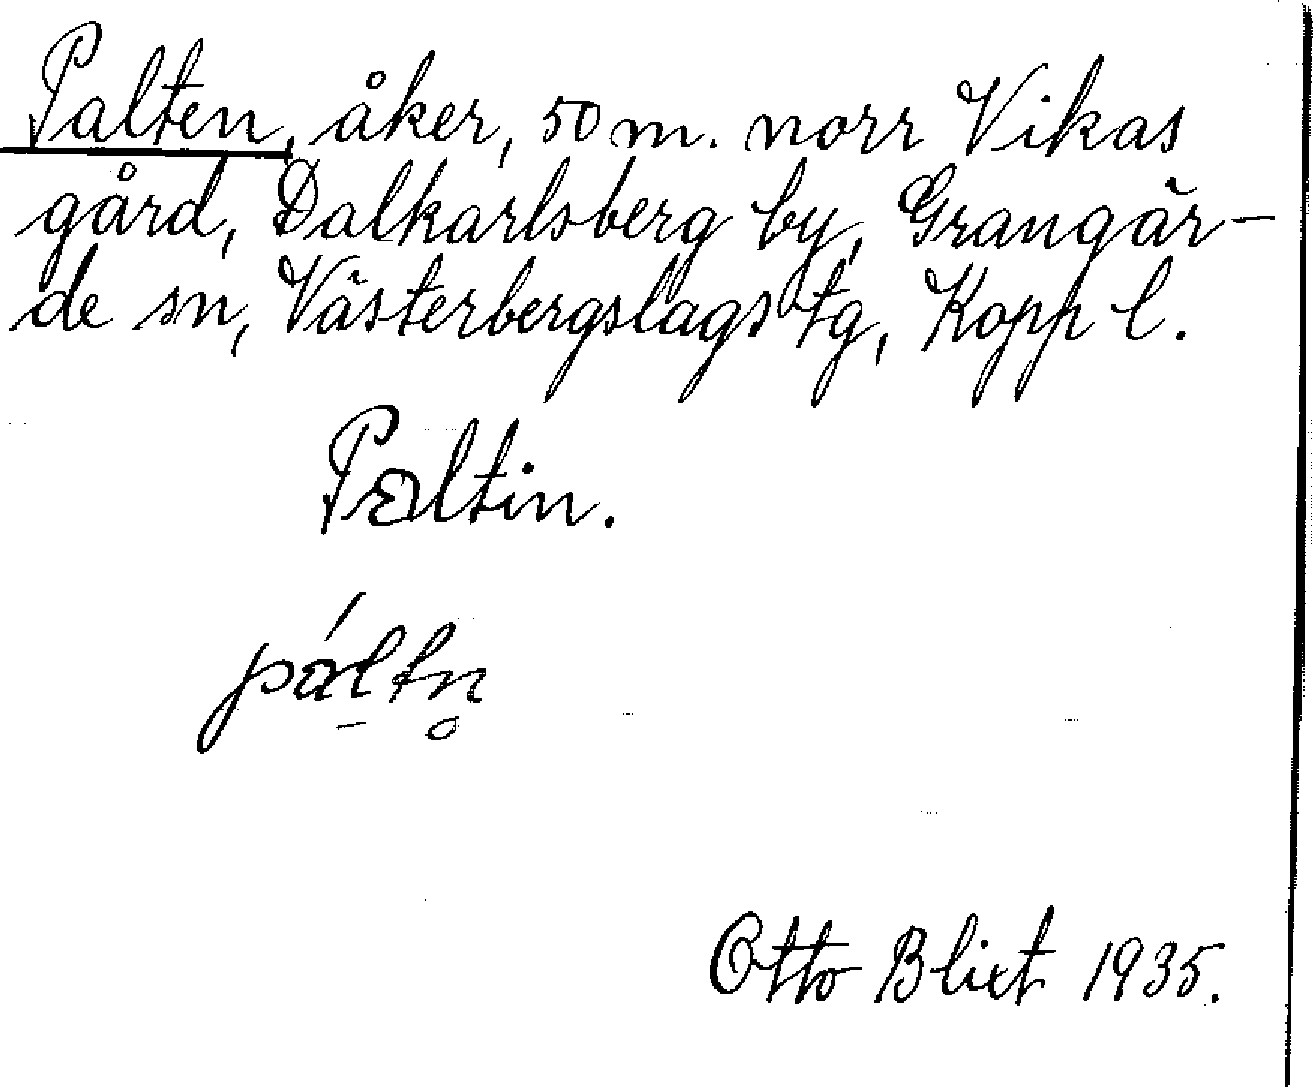 Palten, åker, 50 m. norr Vikas
gård, Dalkarlsberg by, Grangär-
de sn, Västerbergslags tg, Kopp l.
Paltin.
páltn̥
Otto Blixt 1935.